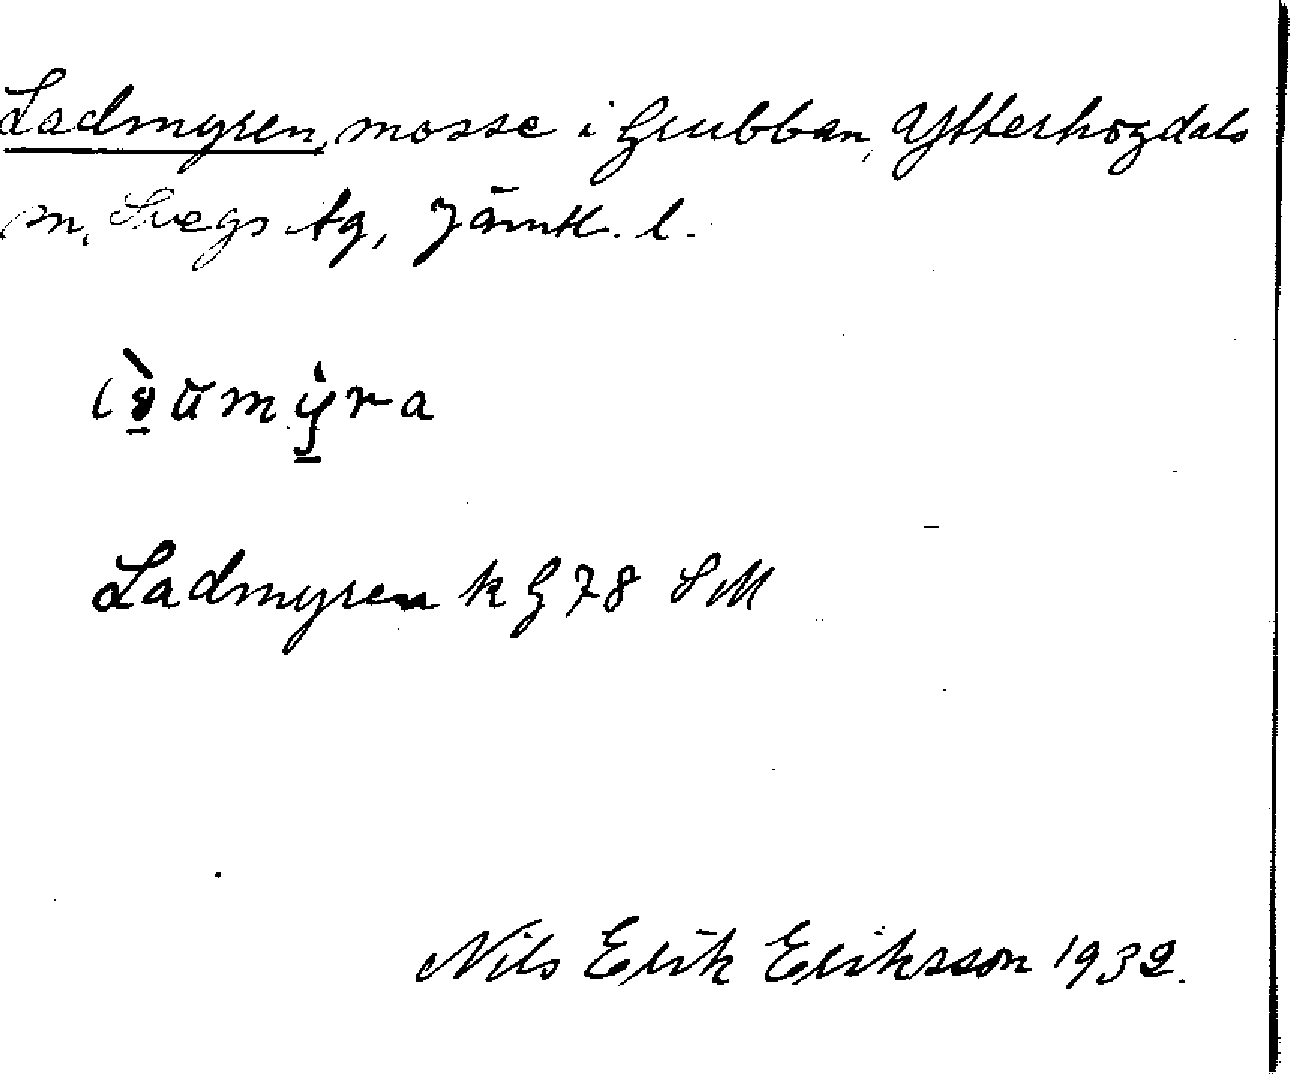 Ladmyren, mosse i Grubban, Ytterhogdals
m, Svegs tg, Jämtl. l.
Ladmyren k G 78 SM
Nils Erik Eriksson 1932.